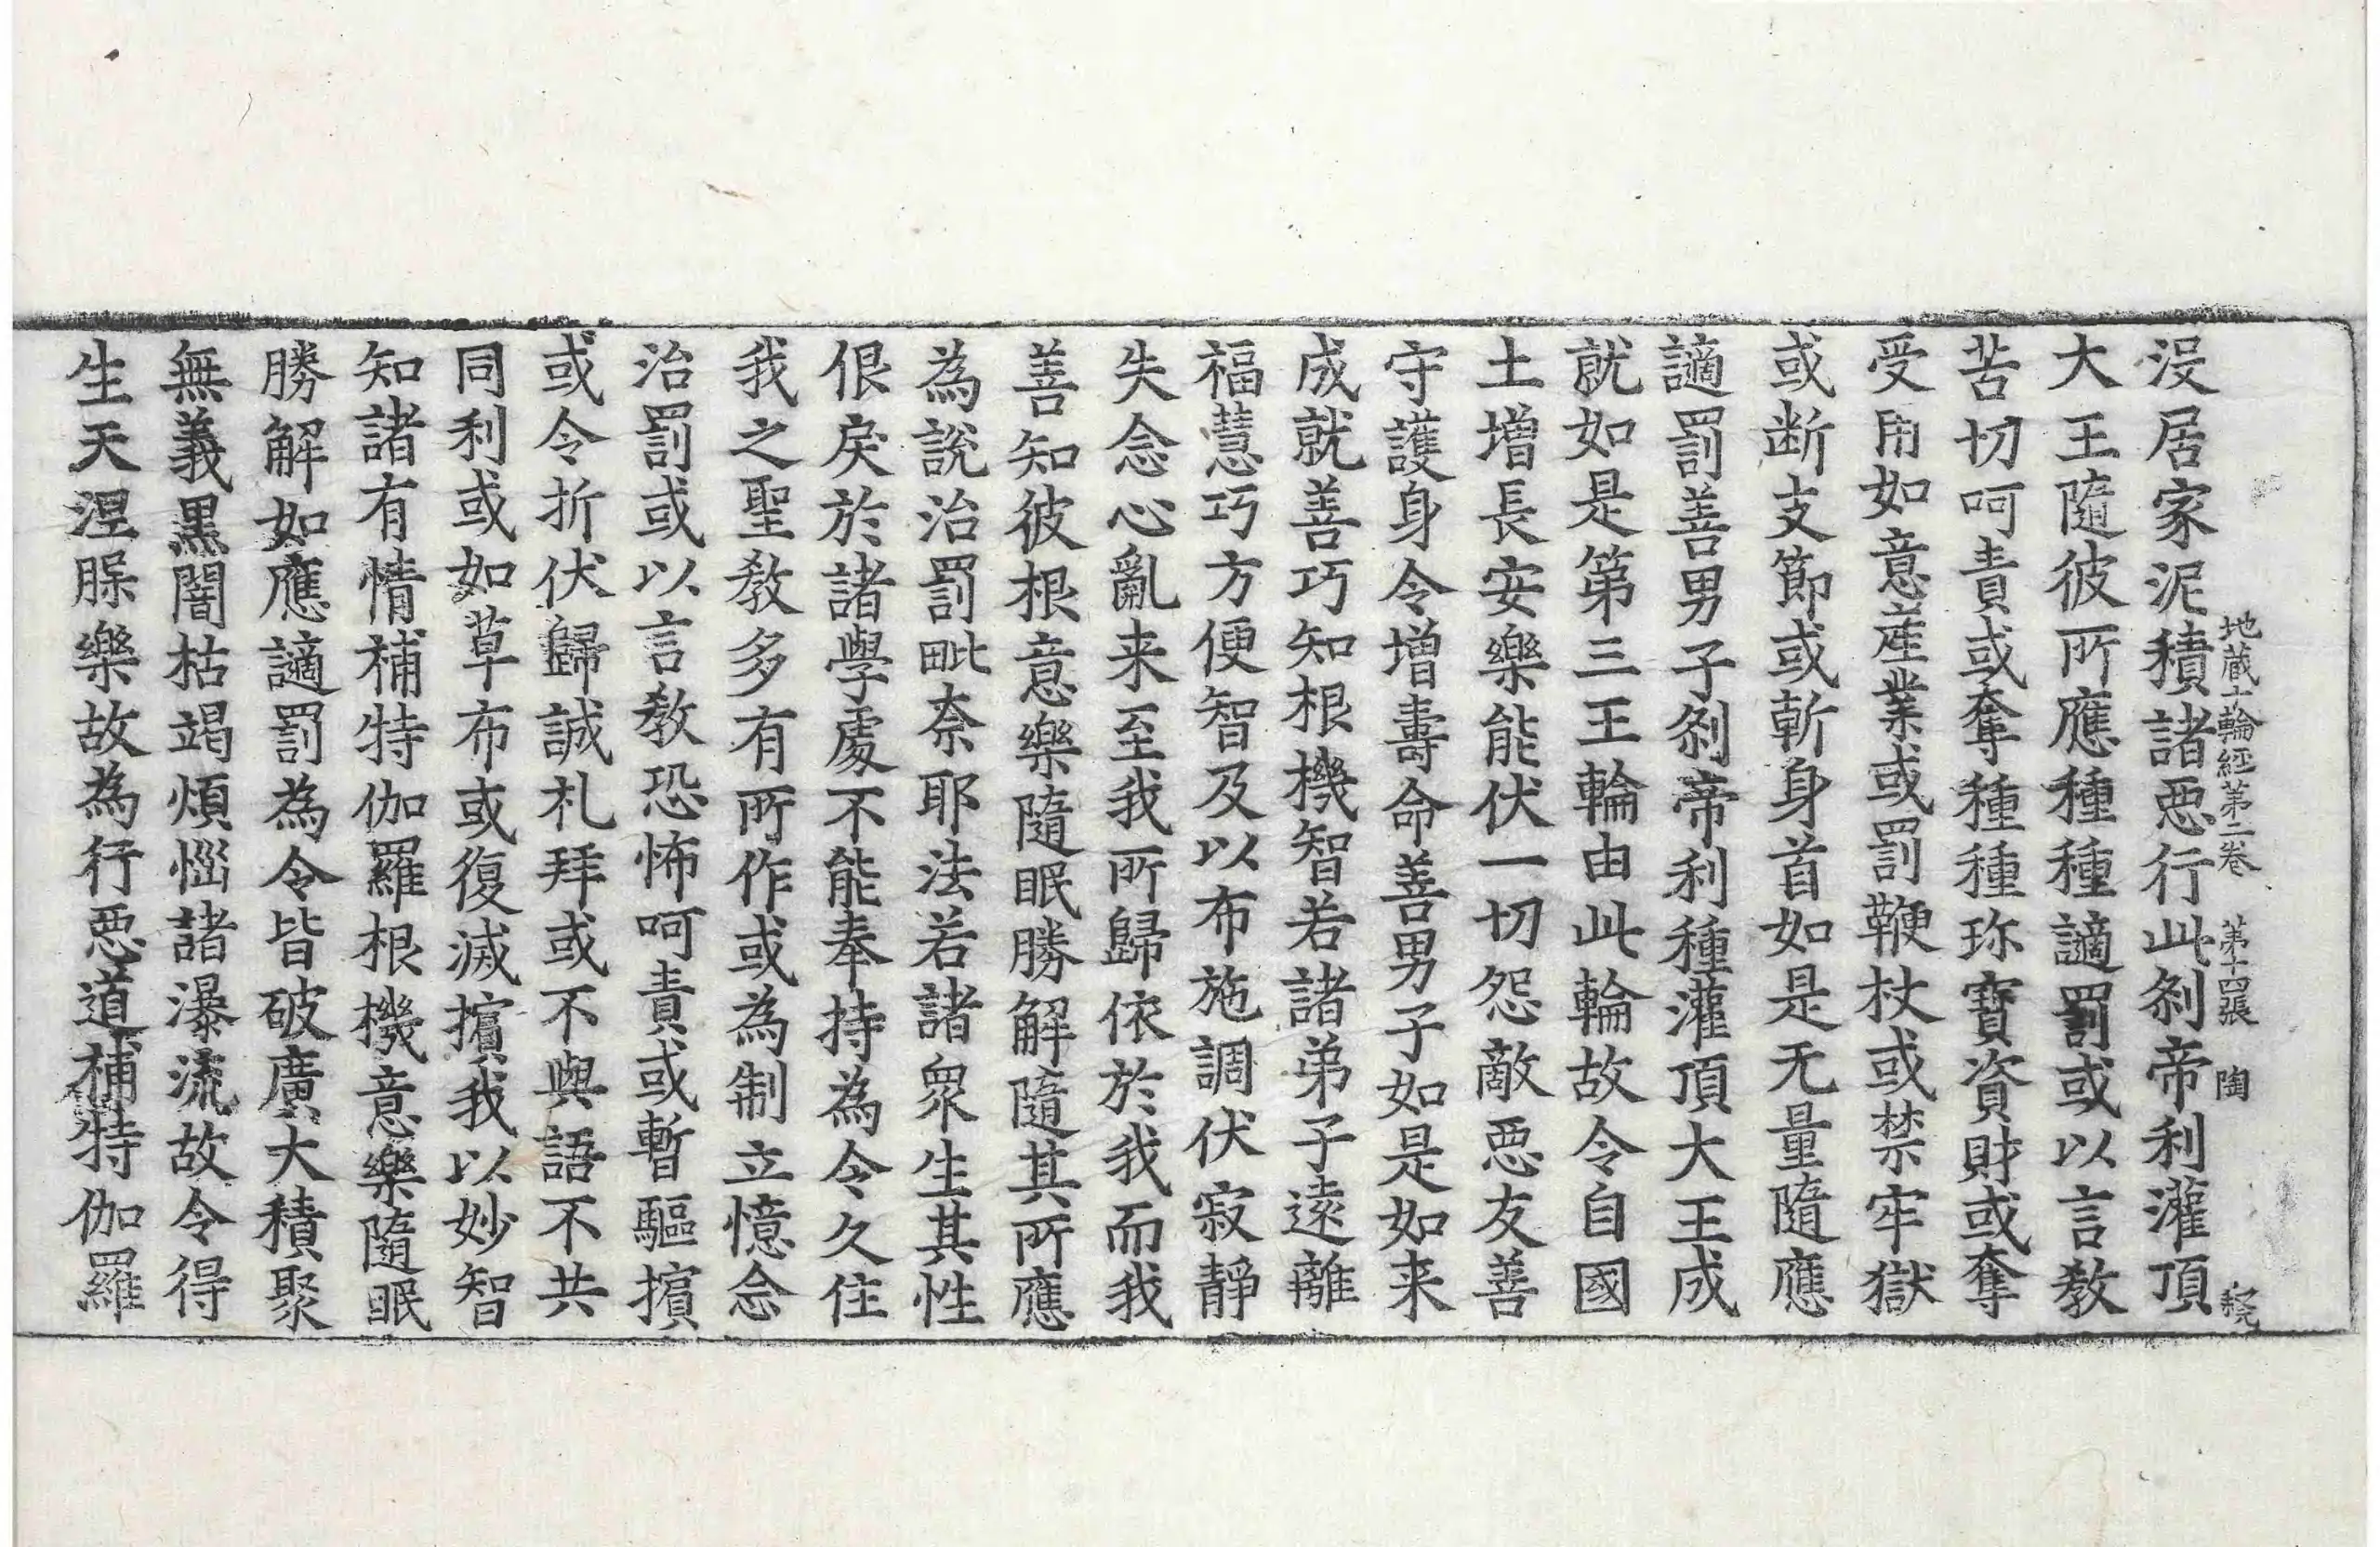 地蔵十輪經第二卷 第十四張 陶
没居家泥積諸惡行此刹帝利灌頂
大王隨彼所應種種讁罰或以言教
苦切呵責或奪種種珎寶資財或奪
受用如意產業或罰鞭杖或禁牢獄
或断支節或斬身首如是无量隨應
讁罰善男子刹帝利種灌頂大王成
就如是第三王輪由此輪故令自國
土增長安樂能伏一切怨敵惡友善
守護身令增壽命善男子如是如来
成就善巧知根機智若諸弟子遠離
福慧巧方便智及以布施調伏寂靜
失念心亂来至我所歸依於我而我
善知彼根意樂隨眠勝解隨其所應
為說治罰毗奈耶法若諸衆生其性
佷戾於諸學處不能奉持為令久住
我之聖教多有所作或為制立憶念
治罰或以言教恐怖呵責或暫驅擯
或令折伏歸誠礼拜或不與語不共
同利或如草布或復滅擯我以妙智
知諸有情補特伽羅根機意樂隨眠
勝解如應讁罰為令皆破廣大積聚
無義黑闇枯竭煩惱諸瀑流故令得
生天涅槃樂故為行惡道補特伽羅